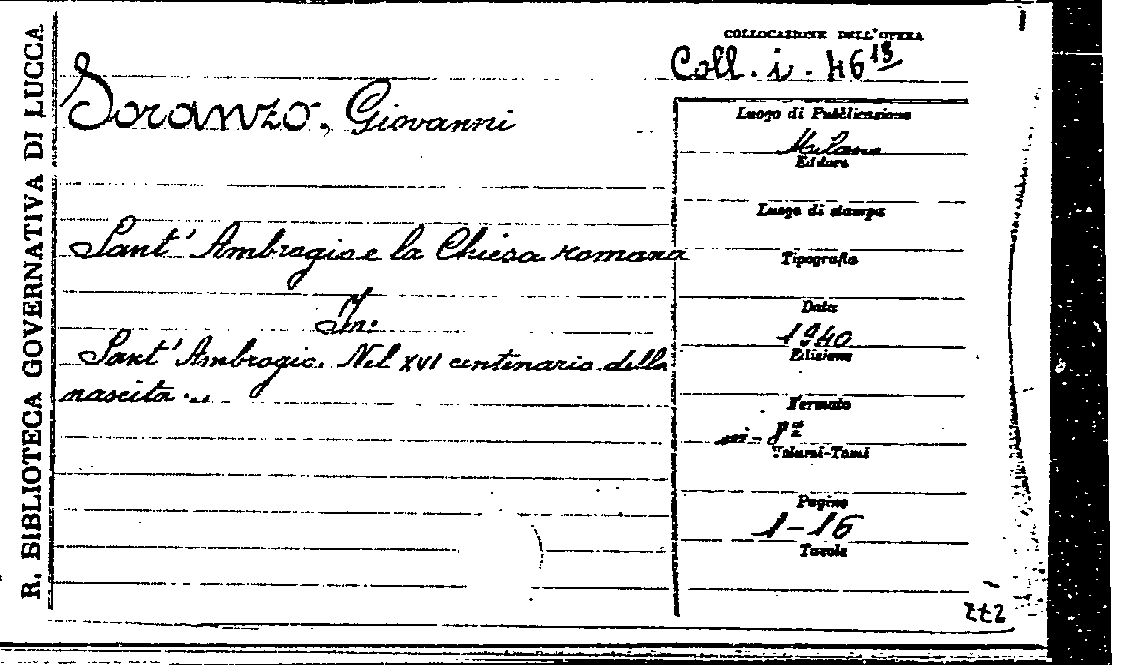 R. BIBLIOTECA GOVERNATIVA DI LUCCA
COLLOCAZIONE DELL'OPERA
Coll. i. 46 13
Soranzo, Giovanni
Sant' Ambrogio e la Chiesa romana
In:
Sant' Ambrogio. Nel XVI centenario della
nascita ...
Luogo di Pubblicazione
Milano
Editore
Luogo di stampa
Tipografia
Data
1940
Edizione
Formato
in-8º
Volumi-Tomi
Pagine
1-16
Tavole